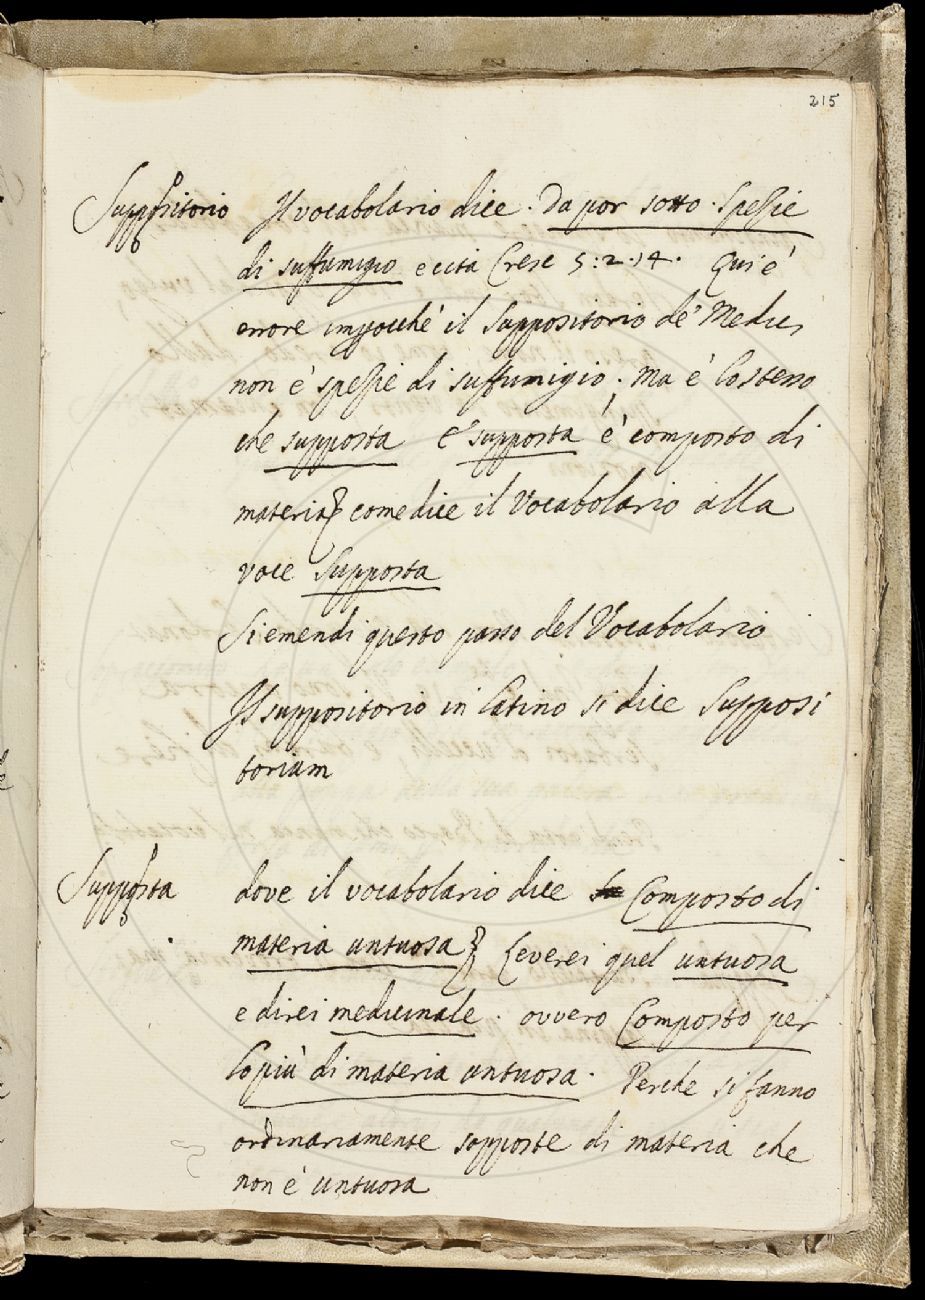 215
Suppositorio Il vocabolario dice. Da por sotto. Spezie
di suffumigio e cita Cresc 5:2.14. Qui è
errore imperocchè il suppositorio de' Medici
non è spezie di suffumigio. Ma è lo stesso
che supposta e supposta è composto di
materia come dice il Vocabolario alla
voce Supposta
Si emendi questo passo del Vocabolario
Il suppositorio in latino si dice Supposi
torium
Supposta dove il vocabolario dice Composto di
materia untuosa Leverei quel untuosa
e direi medicinale. ovvero Composto per
lo più di materia untuosa. Perche si fanno
ordinariamente sopposte di materia che
non è untuosa